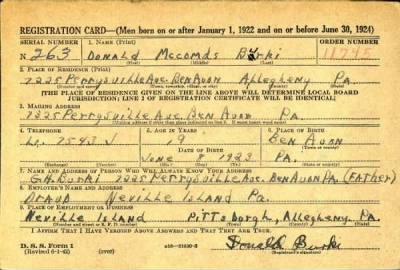 REGISTRATION CARD—(Men born on or after January 1, 1922 and on or before June 30, 1924)
SERIAL NUMBER 1. NAME (Print) ORDER NUMBER
N 263 DONALD MCCOMBS BURKI 11745
(First) (Middle) (Last)
2. PLACE OF RESIDENCE (Print)
7225 Perrysville Ave. Ben Avon Allegheny Pa.
(Number and street) (Town, township, village, or city) (County) (State)
[THE PLACE OF RESIDENCE GIVEN ON THE LINE ABOVE WILL DETERMINE LOCAL BOARD
JURISDICTION; LINE 2 OF REGISTRATION CERTIFICATE WILL BE IDENTICAL]
3. MAILING ADDRESS
7225 Perrysville Ave. Ben Avon Pa.
[Mailing address if other than place indicated on line 2. If same insert word same]
4. TELEPHONE 5. AGE IN YEARS 6. PLACE OF BIRTH
7543 J 19 BEN AVON
DATE OF BIRTH
JUNE 8 1922 PA.
(Exchange) (Number) (Mo.) (Day) (Yr.) (State or country)
7. NAME AND ADDRESS OF PERSON WHO WILL ALWAYS KNOW YOUR ADDRESS
G.H. Burki 7225 Perrysville Ave. Ben Avon Pa. (Father)
8. EMPLOYER'S NAME AND ADDRESS
DRAVO Neville Island Pa.
9. PLACE OF EMPLOYMENT OR BUSINESS
Neville Island Pittsburgh, Allegheny Pa.
(Number and street or R. F. D. number) (Town) (County) (State)
I AFFIRM THAT I HAVE VERIFIED ABOVE ANSWERS AND THAT THEY ARE TRUE.
D. S. S. Form 1
(Revised 6-1-42) (over)
Donald Burki
(Registrant's signature)